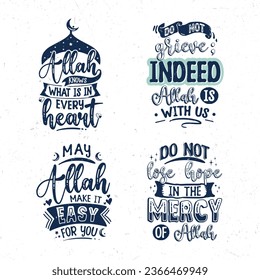 Allah
KNOWS
WHAT IS IN
EVERY
heart
DO NOT
grieve;
INDEED
Allah IS
WITH US
MAY
Allah
MAKE IT
EASY
FOR YOU
DO NOT
lose hope
IN THE
MERCY
OF Allah
shutterstock.com · 2366469949